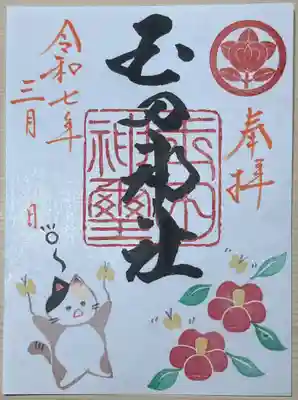 奉拝
玉田神社
令和七年
三月 日